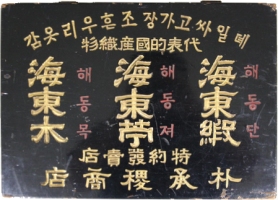 뎨일싸고가장조흔우리옷감
代表的國産織物
海東緞 해동단
海東苧 해동저
海東木 해동목
特約發賣店
朴承稷商店